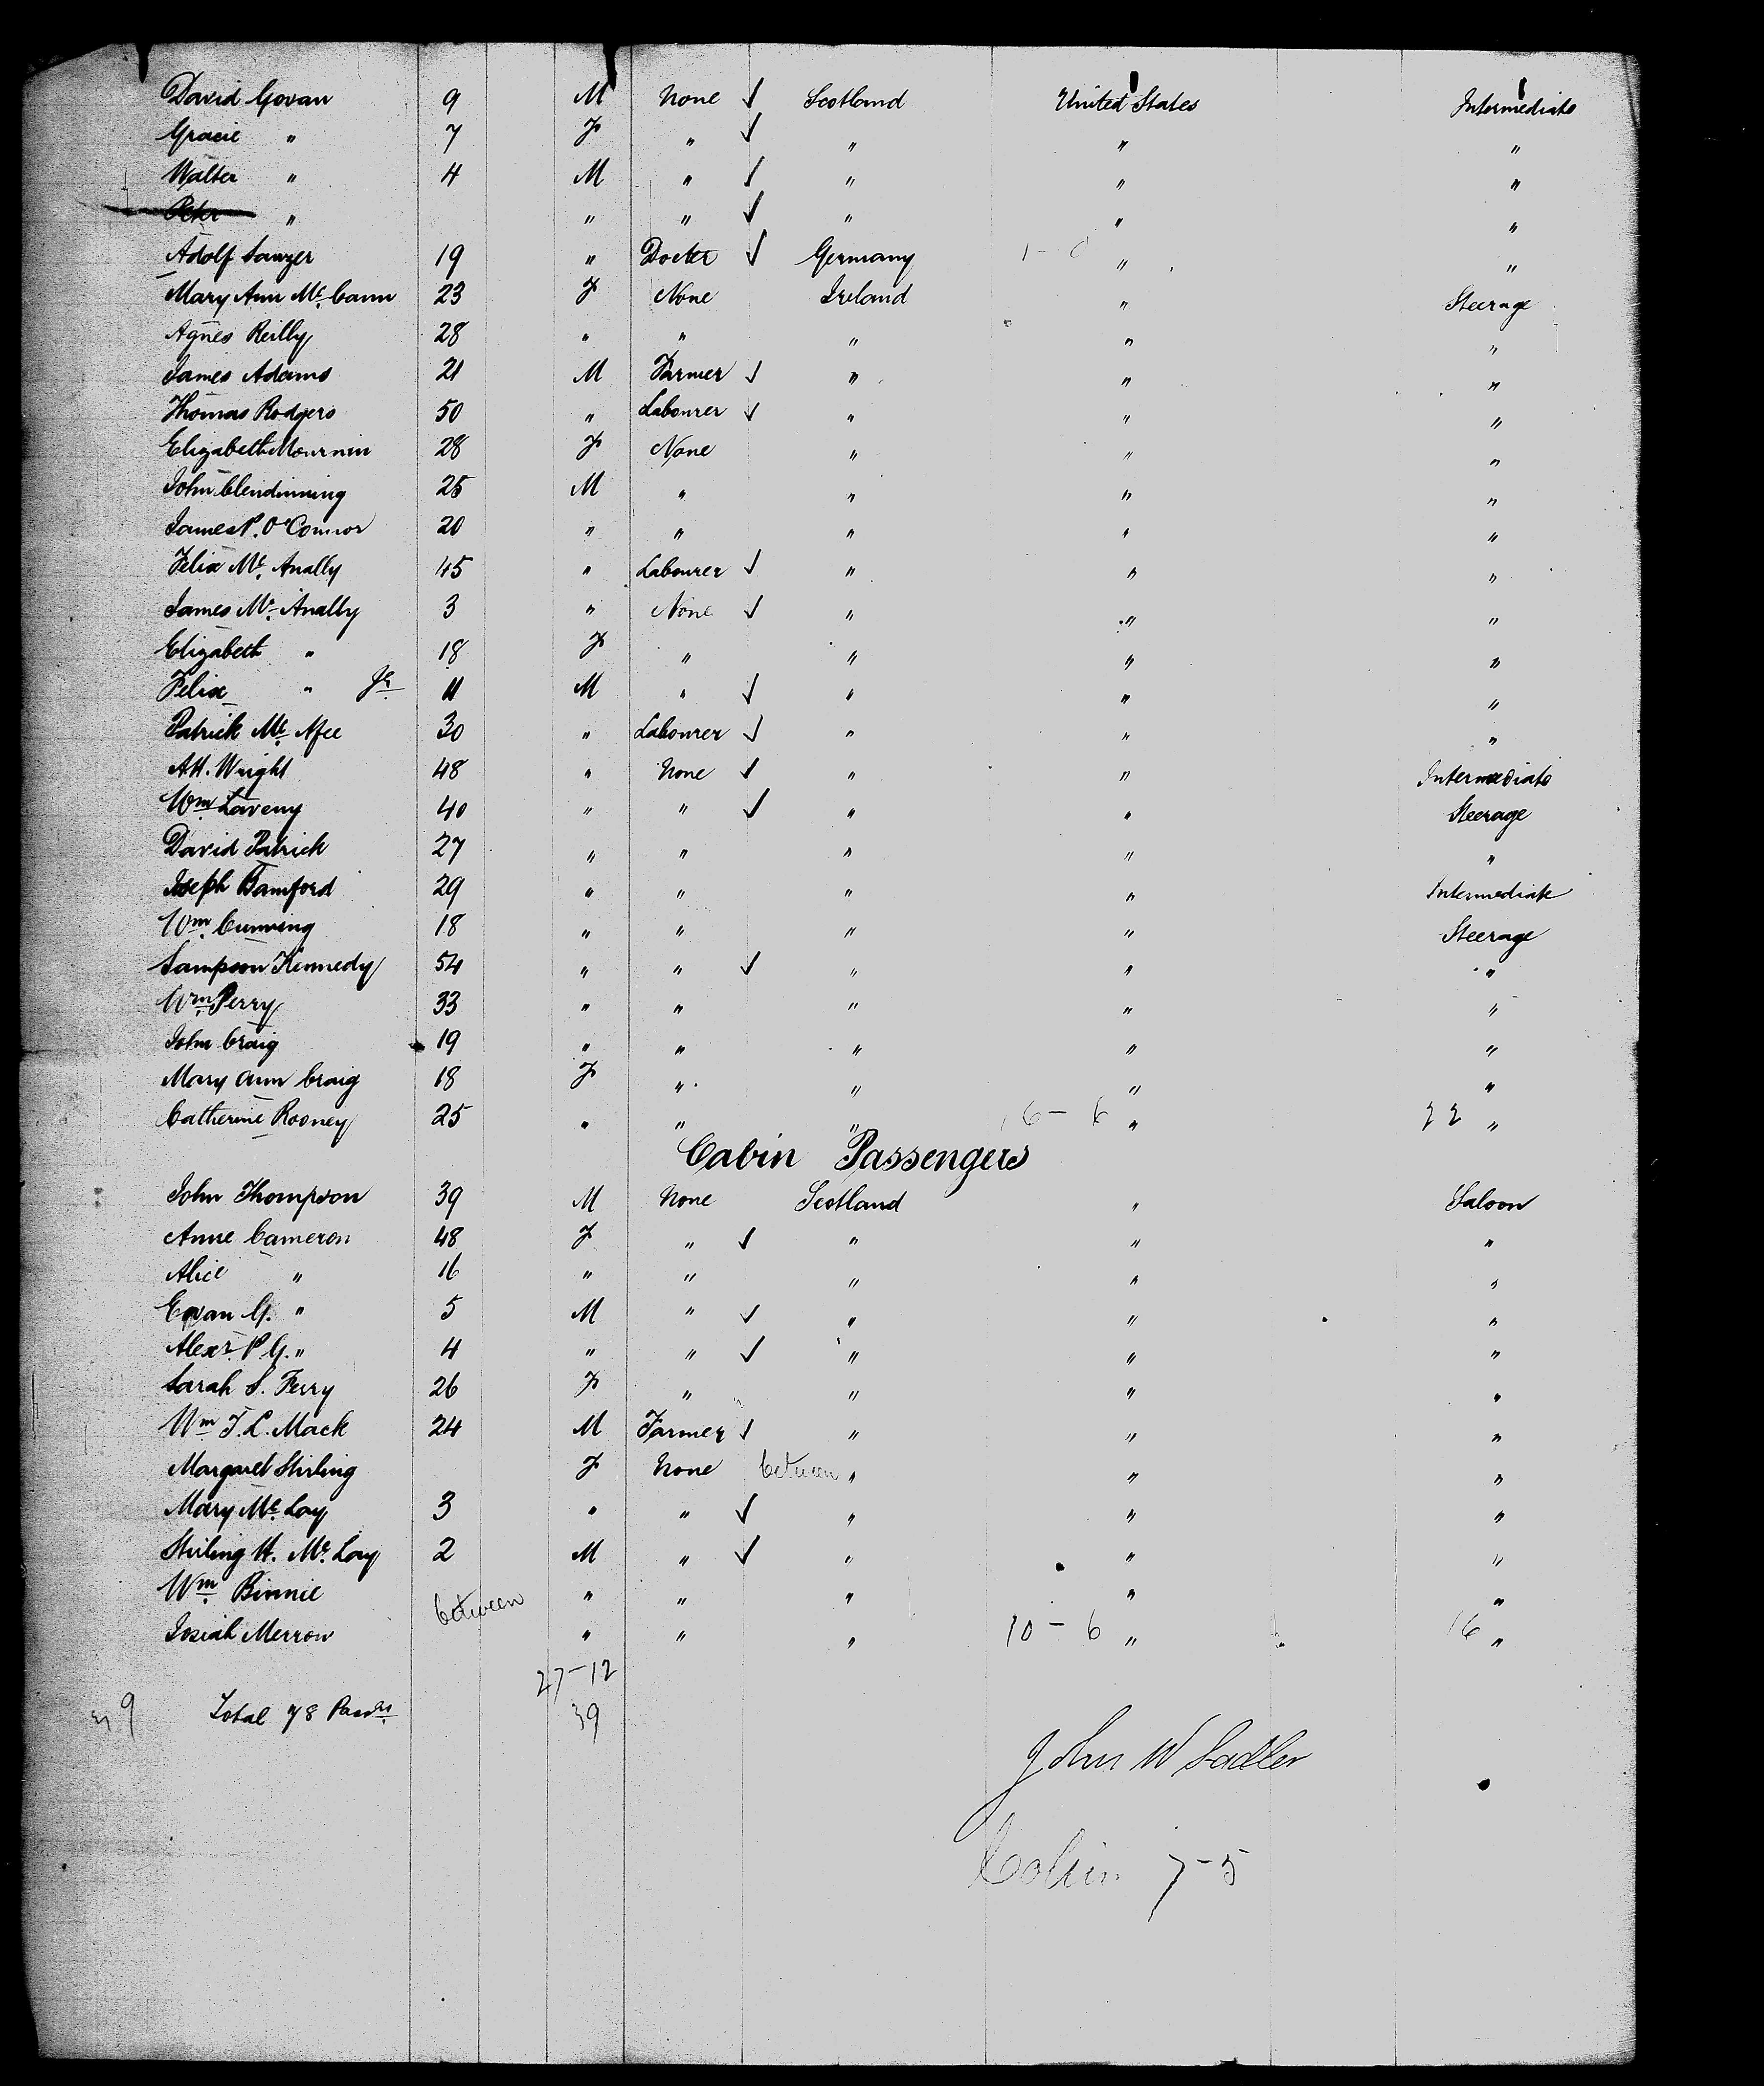 David Govan 9 M None ✓ Scotland United States Intermediate
Gracie " 7 F " ✓ " " "
Walter " 4 M " ✓ " " "
Peter " " " ✓ " " "
Adolf 19 " Docter ✓ Germany " "
Mary Ann Mc Cann 23 F None Ireland " Steerage
Agnes Reilly 28 " " " " "
James Adams 21 M Farmer ✓ " " "
Thomas Rodgers 50 " Labourer ✓ " " "
Elizabeth Mournin 28 F None " " "
John Clendinning 25 M " " " "
James P. O'Connor 20 " " " " "
Felix Mc Anally 45 " Labourer ✓ " " "
James Mc Anally 3 " None ✓ " " "
Elizabeth " 18 F " " " "
Felix " Jr 11 M " ✓ " " "
Patrick Mc Afee 30 " Labourer ✓ " " "
AH. Wright 48 " None ✓ " " Intermediate
Wm Laveny 40 " " ✓ " " Steerage
David Patrick 27 " " " " "
Joseph Bamford 29 " " " " Intermediate
Wm Cumming 18 " " " " Steerage
Sampson Kennedy 54 " " ✓ " " "
Wm Perry 33 " " " " "
John Craig 19 " " " " "
Mary Ann Craig 18 F " " " "
Catherine Rooney 25 " " " 6 - 6 " 22 "
Cabin Passengers
John Thompson 39 M None Scotland " Saloon
Anne Cameron 48 F " ✓ " " "
Alice " 16 " " " " "
Ewan G. " 5 M " ✓ " " "
Alexr P. G. " 4 " " ✓ " " "
Sarah S. Ferry 26 F " " " "
Wm T. L. Mack 24 M Farmer ✓ " " "
Margaret Stirling F None between " " "
Mary Mc Lay 3 " " ✓ " " "
Stirling H. Mc Lay 2 M " ✓ " " "
Wm Binnie " " " " "
Josiah Merrow between " " " 10 - 6 " 16 "
27-12
39 Total 78 Passrs 39
John W Sadler
Colin 7-5